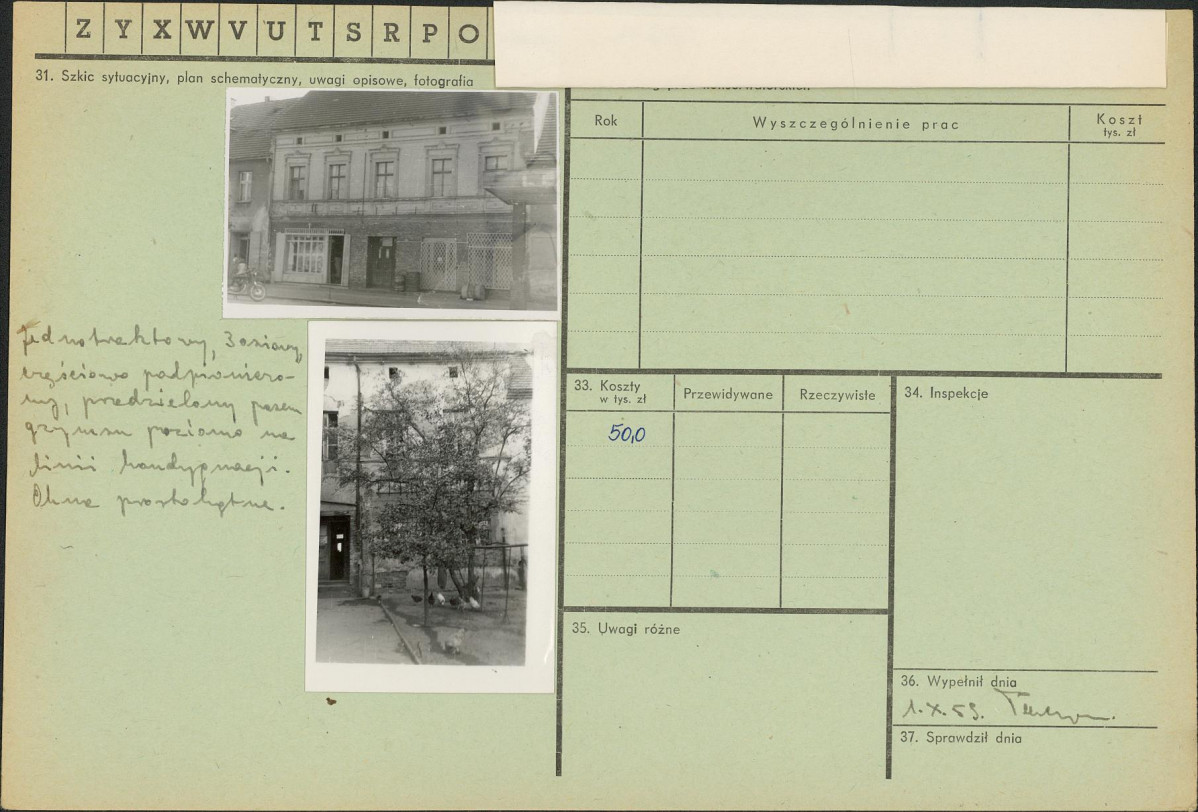 Z Y X W V U T S R P O
31. Szkic sytuacyjny, plan schematyczny, uwagi opisowe, fotografia
Jednotraktowy, 3 osiowy,
częściowo podpiwniczo-
ny, przedzielony pasem
gzymsu poziomo na
linii kondygnacji.
Okna prostokątne.
Rok
Wyszczególnienie prac
Koszt
tys. zł
33. Koszty
w tys. zł
Przewidywane
Rzeczywiste
50,0
34. Inspekcje
35. Uwagi różne
36. Wypełnił dnia
1.X.59.
37. Sprawdził dnia